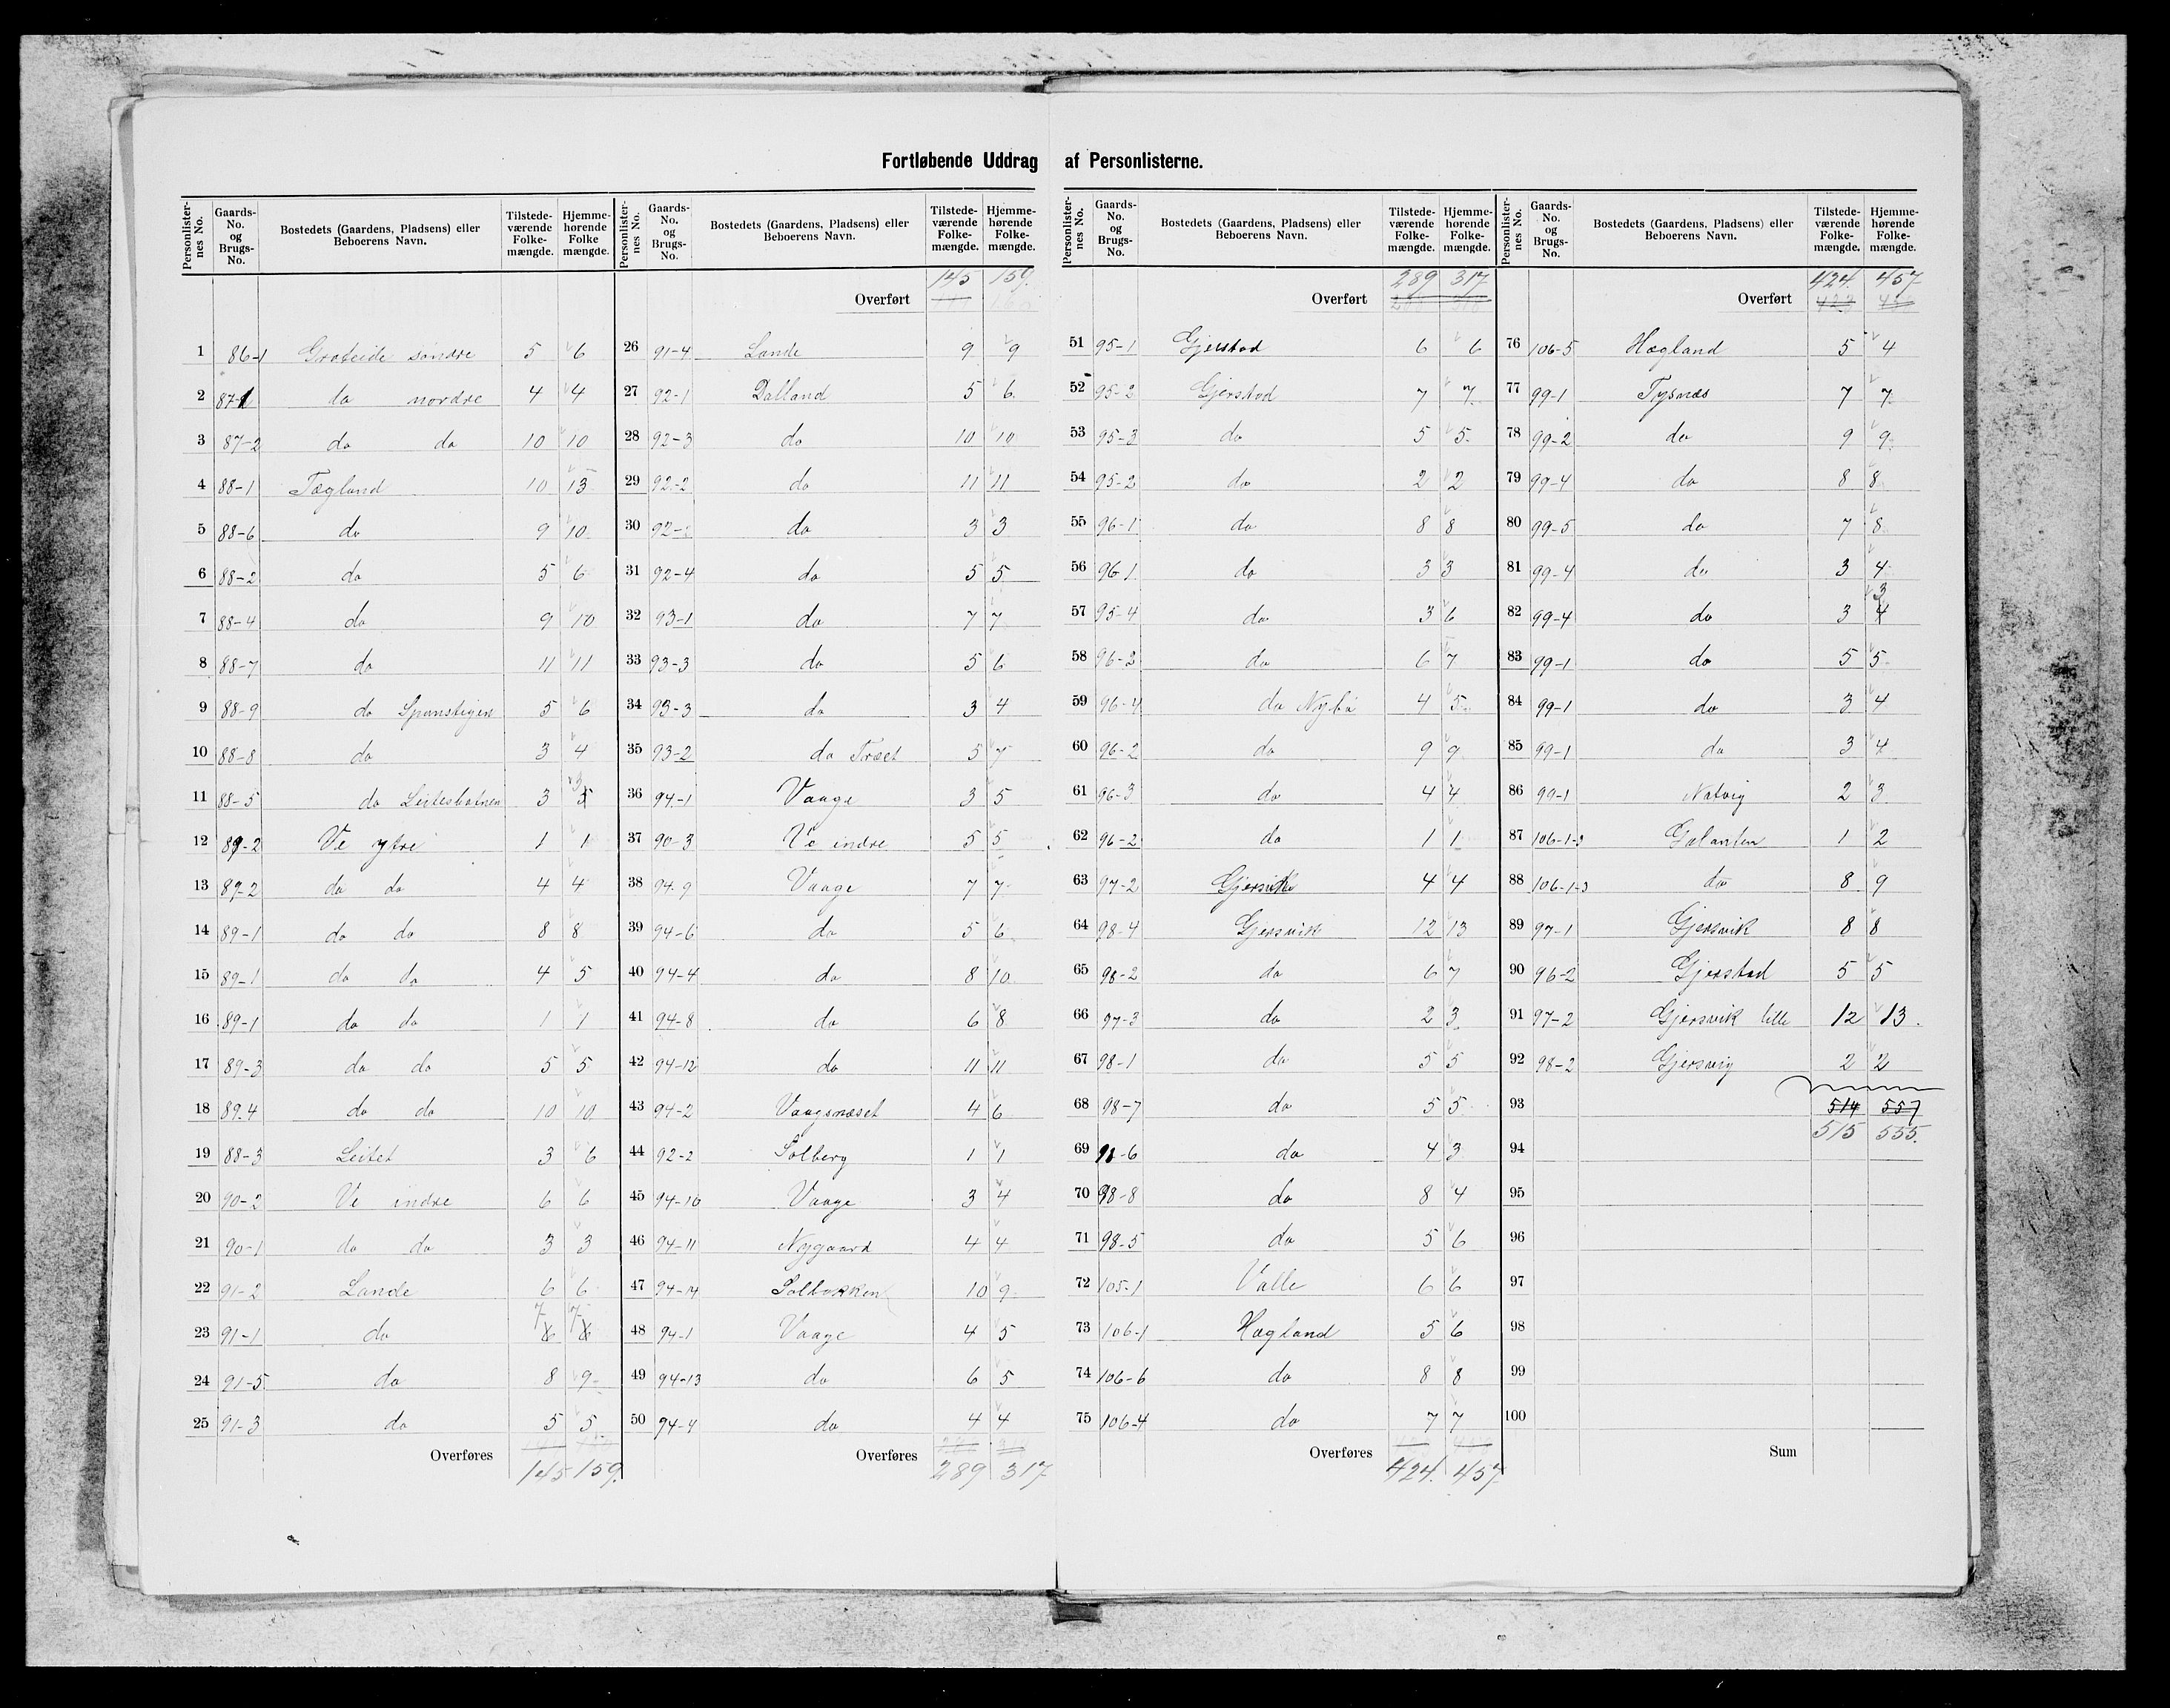 Fortløbende Uddrag af Personlisterne.
Personlister-nes No. Gaards-No. og Brugs-No. Bostedets (Gaardens, Pladsens) eller Beboerens Navn. Tilstede-værende Folke-mængde. Hjemme-hørende Folke mængde.
1 86-1 Groteide søndre 5 6
2 87-1 do nordre 4 4
3 87-2 do do 10 10
4 88-1 Tægland 10 13
5 88-6 do 9 10
6 88-2 do 5 6
7 88-4 do 9 10
8 88-7 do 11 11
9 88-9 do Spanstigen 5 6
10 88-8 do 3 4
11 88-5 do Leitesbotnen 3 3
12 89-2 Ve ytre 1 1
13 89-2 do do 4 4
14 89-1 do do 8 8
15 89-1 do do 4 5
16 89-1 do do 1 1
17 89-3 do do 5 5
18 89.4 do do 10 10
19 88-3 Leitet 3 6
20 90-2 Ve indre 6 6
21 90-1 do do 3 3
22 91-2 Lande 6 6
23 91-1 do 7 7
24 91-5 do 8 9
25 91-3 do 5 5
Overføres 145 159.
Personlister-nes No. Gaards-No. og Brugs-No. Bostedets (Gaardens, Pladsens) eller Beboerens Navn. Tilstede-værende Folke-mængde. Hjemme-hørende Folke-mængde.
Overført 145 159.
26 91-4 Lande 9 9
27 92-1 Dalland 5 6
28 92-3 do 10 10
29 92-2 do 11 11
30 92- do 3 3
31 92-4 do 5 5
32 93-1 do 7 7
33 93-3 do 5 6
34 93-3 do 3 4
35 93-2 do Træet 5 7
36 94-1 Vaage 3 5
37 90-3 Ve indre 5 5
38 94.9 Vaage 7 7
39 94-6 do 5 6
40 94-4 do 8 10
41 94-8 do 6 8
42 94-12 do 11 11
43 94-2 Vaagsnæset 4 6
44 92-2 Solberg 1 1
45 94-10 Vaage 3 4
46 94-11 Nygaard 4 4
47 94-14 Solbakken 10 9
48 94-1 Vaage 4 5
49 94-13 do 6 5
50 94-4 do 4 4
Overføres 289 317
Personlister-nes No. Gaards-No. og Brugs-No. Bostedets (Gaardens, Pladsens) eller Beboerens Navn. Tilstede-værende Folke-mængde. Hjemme-hørende Folke-mængde.
Overført 289 317
51 95-1 Gjerstad 6 6
52 95-2 Gjerstad 7 7
53 95-3 do 5 5
54 95-2 do 2 2
55 96-1 do 8 8
56 96 1 do 3 3
57 95-4 do 3 6
58 96-2 do 6 7
59 96-4 do Nybø 4 5
60 96-2 do 9 9
61 96-3 do 4 4
62 96-2 do 1 1
63 97-2 Gjersvik 4 4
64 98-4 Gjersvik 12 13
65 98-2 do 6 7
66 97-3 do 2 3
67 98-1 do 5 5
68 98-7 do 5 5
69 98-6 do 4 3
70 98-8 do 8 4
71 98-5 do 5 6
72 105-1 Valle 6 6
73 106-1 Hægland 5 6
74 106-6 do 8 8
75 106-4 do 7 7
Overføres 424. 457
Personlister-nes No. Gaards-No. og Brugs-No. Bostedets (Gaardens, Pladsens) eller Beboerens Navn. Tilstede-værende Folke-mængde. Hjemme-hørende Folke-mængde.
Overført 424. 457
76 106-5 Hægland 5 4
77 99-1 Tysnæs 7 7
78 99-2 do 9 9
79 99-4 do 8 8
80 99-5 do 7 8
81 99-4 do 3 4
82 99-4 do 3 3
83 99-1 do 5 5
84 99-1 do 3 4
85 99-1 do 3 4
86 99-1 Natvig 2 3
87 106-1-3 Galanten 1 2
88 106-1-3 do 8 9
89 97-1 Gjersvik 8 8
90 96-2 Gjerstad 5 5
91 97-2 Gjersvik lille 12 13
92 98-2 Gjersvig 2 2
93 514 557
515 555.
94
95
96
97
98
99
100
Sum